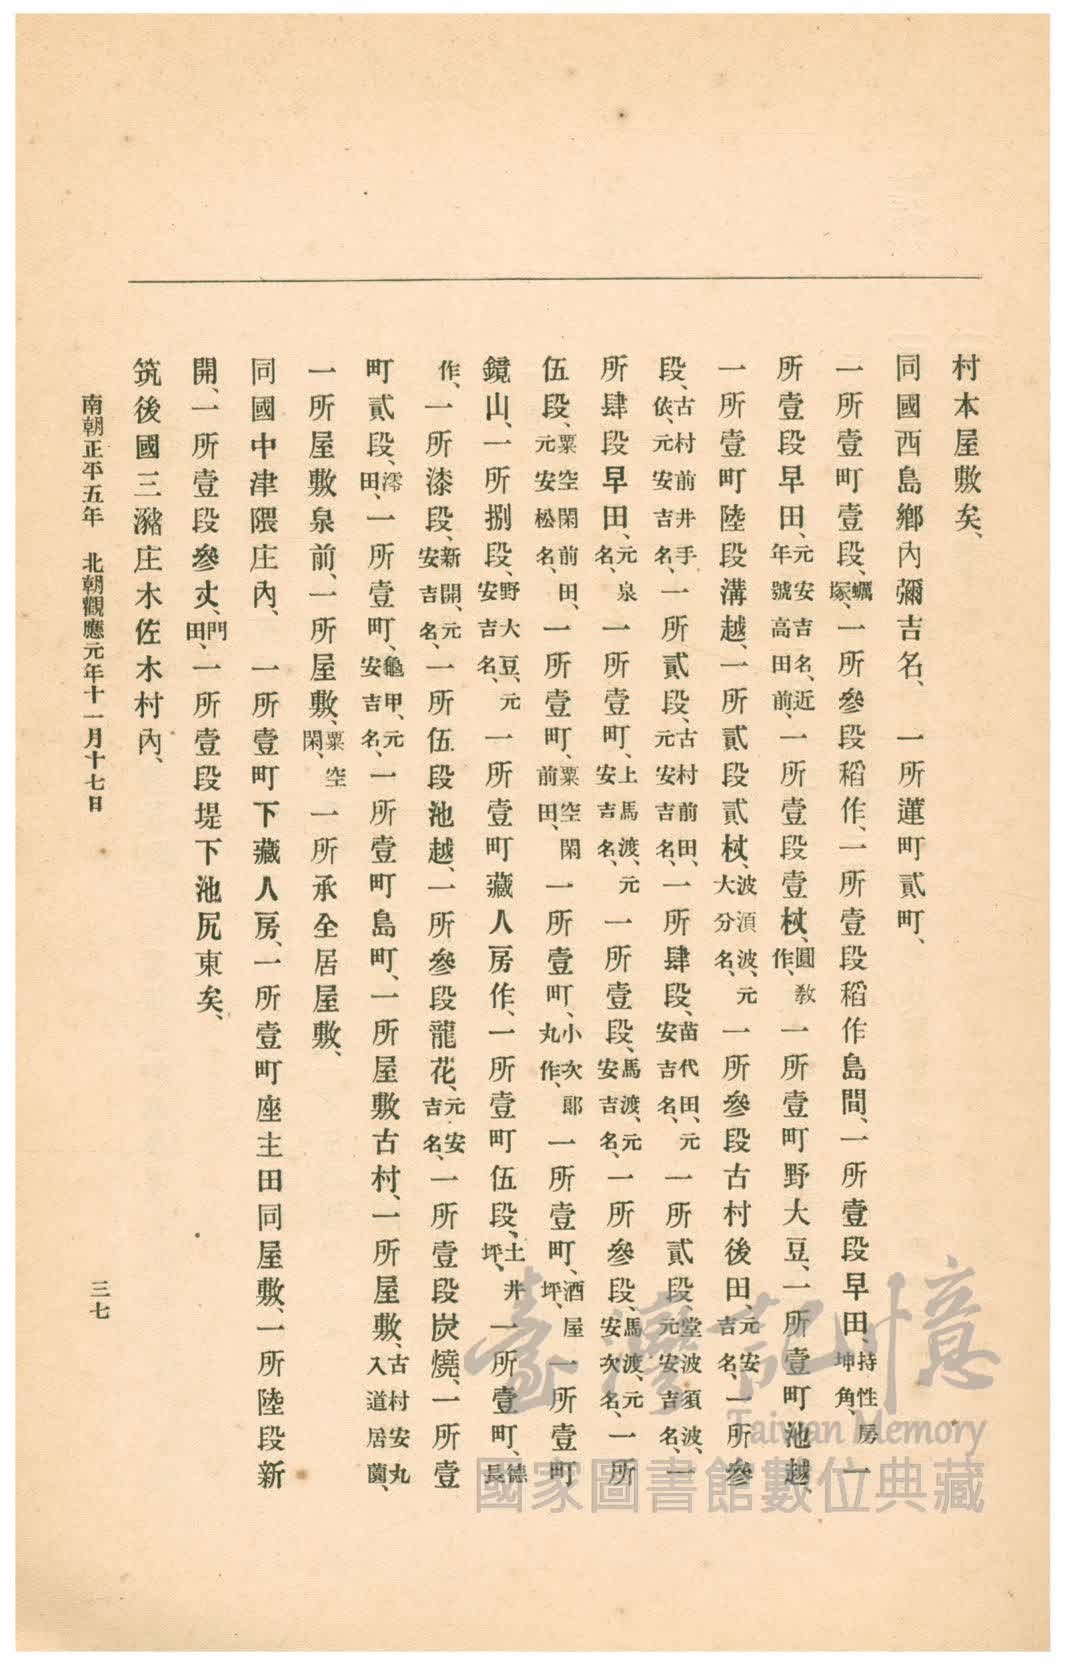 村本屋敷矣、
同國西島鄕內彌吉名、一所蓮町貳町、
一所壹町壹段、蠣塚、一所參段稻作、一所壹段稻作島間、一所壹段早田、持性房坤角、一
所壹段早田、元安吉名、近年號高田前、一所壹段壹杖、圓敎作、一所壹町野大豆、一所壹町池越、
一所壹町陸段溝越、一所貳段貳杖、波須波、元大分名、一所參段古村後田、元安吉名、一所參
段、古村前井手依、元安吉名、一所貳段、古村前田、元安吉名、一所肆段、苗代田、元安吉名、一所貳段、堂波須波、元安吉名、一
所肆段早田、元泉名、一所壹町、上馬渡、元安吉名、一所壹段、馬渡、元安吉名、一所參段、馬渡、元安次名、一所
伍段、粟空閑前田、元安松名、一所壹町、粟空閑前田、一所壹町、小次郞丸作、一所壹町、酒屋坪、一所壹町
鏡山、一所捌段、野大豆、元安吉名、一所壹町藏人房作、一所壹町伍段、土井坪、一所壹町、德長
作、一所漆段、新開、元安吉名、一所伍段池越、一所參段龍花、元安吉名、一所壹段炭燒、一所壹
町貳段、澪田、一所壹町、龜甲、元安吉名、一所壹町島町、一所屋敷古村、一所屋敷、古村安丸入道居薗、
一所屋敷泉前、一所屋敷、粟空閑、一所承全居屋敷、
同國中津隈庄內、一所壹町下藏人房、一所壹町座主田同屋敷、一所陸段新
開、一所壹段參丈、門田、一所壹段堤下池尻東矣、
筑後國三瀦庄木佐木村內、
南朝正平五年 北朝觀應元年十一月十七日
三七
臺灣記憶
Taiwan Memory
國家圖書館數位典藏